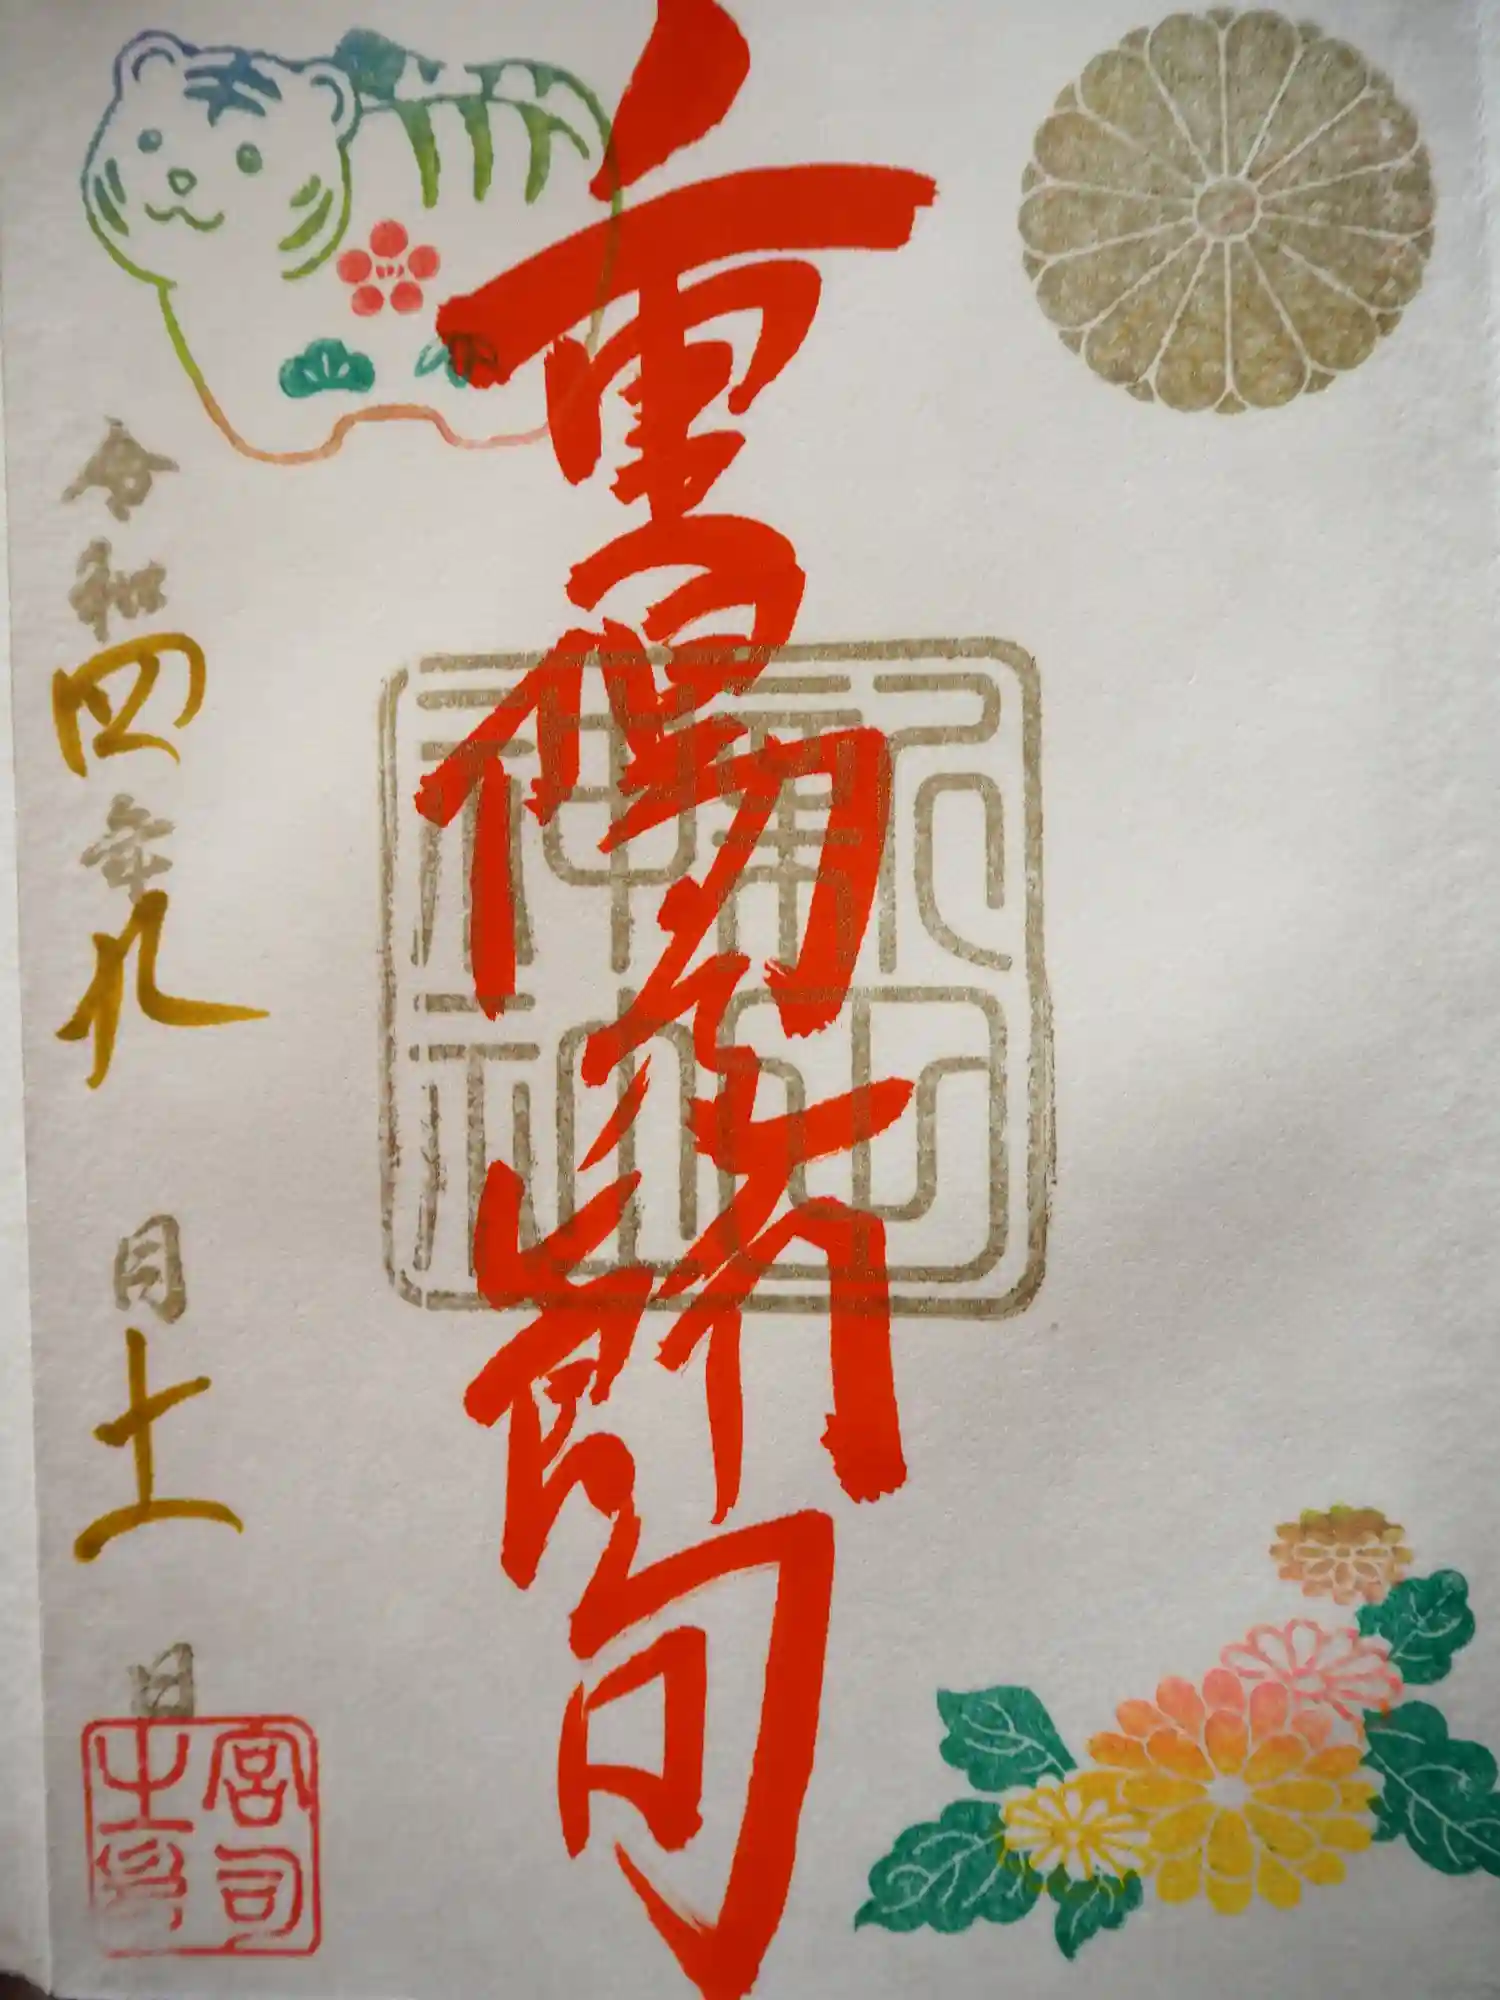 重陽之節句
令和四年九月十一日
神社
宮司
之印